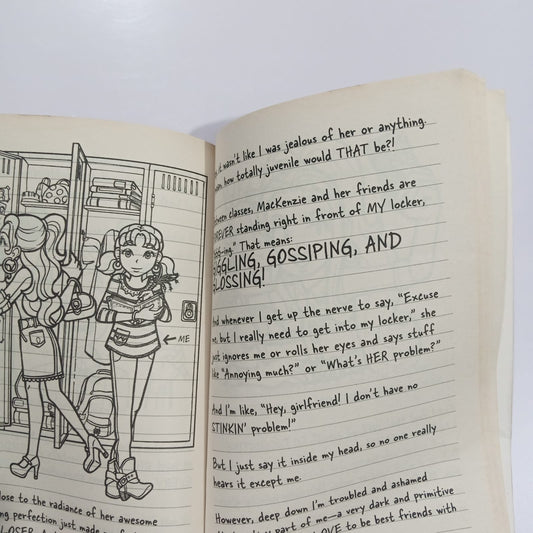 ← ME
lose to the radiance of her awesome
perfection just made
LOSER.
it wasn't like I was jealous of her or anything.
how totally juvenile would THAT be?!
classes, MacKenzie and her friends are
standing right in front of MY locker,
That means:
GIGGLING, GOSSIPING, AND
GLOSSING!
And whenever I get up the nerve to say, "Excuse
but I really need to get into my locker," she
just ignores me or rolls her eyes and says stuff
like "Annoying much?" or "What's HER problem?"
And I'm like, "Hey, girlfriend! I don't have no
STINKIN' problem!"
But I just say it inside my head, so no one really
hears it except me.
However, deep down I'm troubled and ashamed
part of me—a very dark and primitive
LOVE to be best friends with